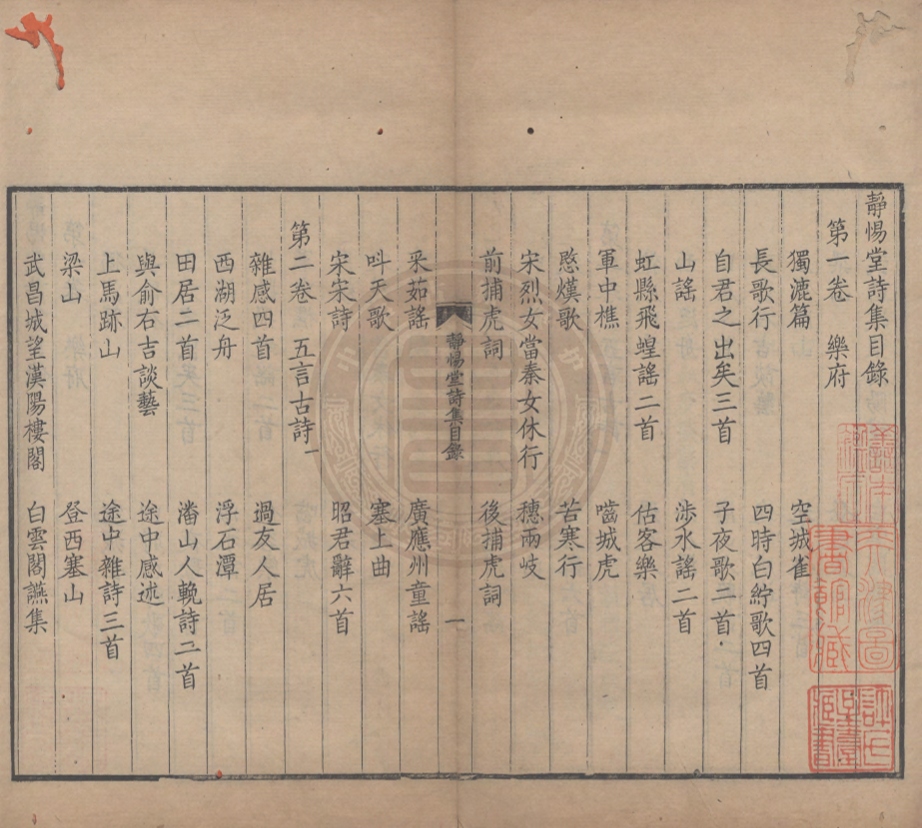 靜惕堂詩集目錄
第一卷　樂府
獨漉篇　空城雀
長歌行　四時白紵歌四首
自君之出矣三首　子夜歌二首
山謠　涉水謠二首
虹縣飛蝗謠二首　估客樂
軍中樵　嚙城虎
愍熯歌　苦寒行
宋烈女當秦女休行　穗兩岐
前捕虎詞　後捕虎詞
靜惕堂詩集目錄　一
采茹謠　廣應州童謠
呌天歌　塞上曲
宋宋詩　昭君辭六首
第二卷　五言古詩一
雜感四首　過友人居
西湖泛舟　浮石潭
田居二首　潘山人輓詩二首
與俞右吉談藝　途中感述
上馬跡山　途中雜詩三首
梁山　登西塞山
武昌城望漢陽樓閣　白雲閣讌集